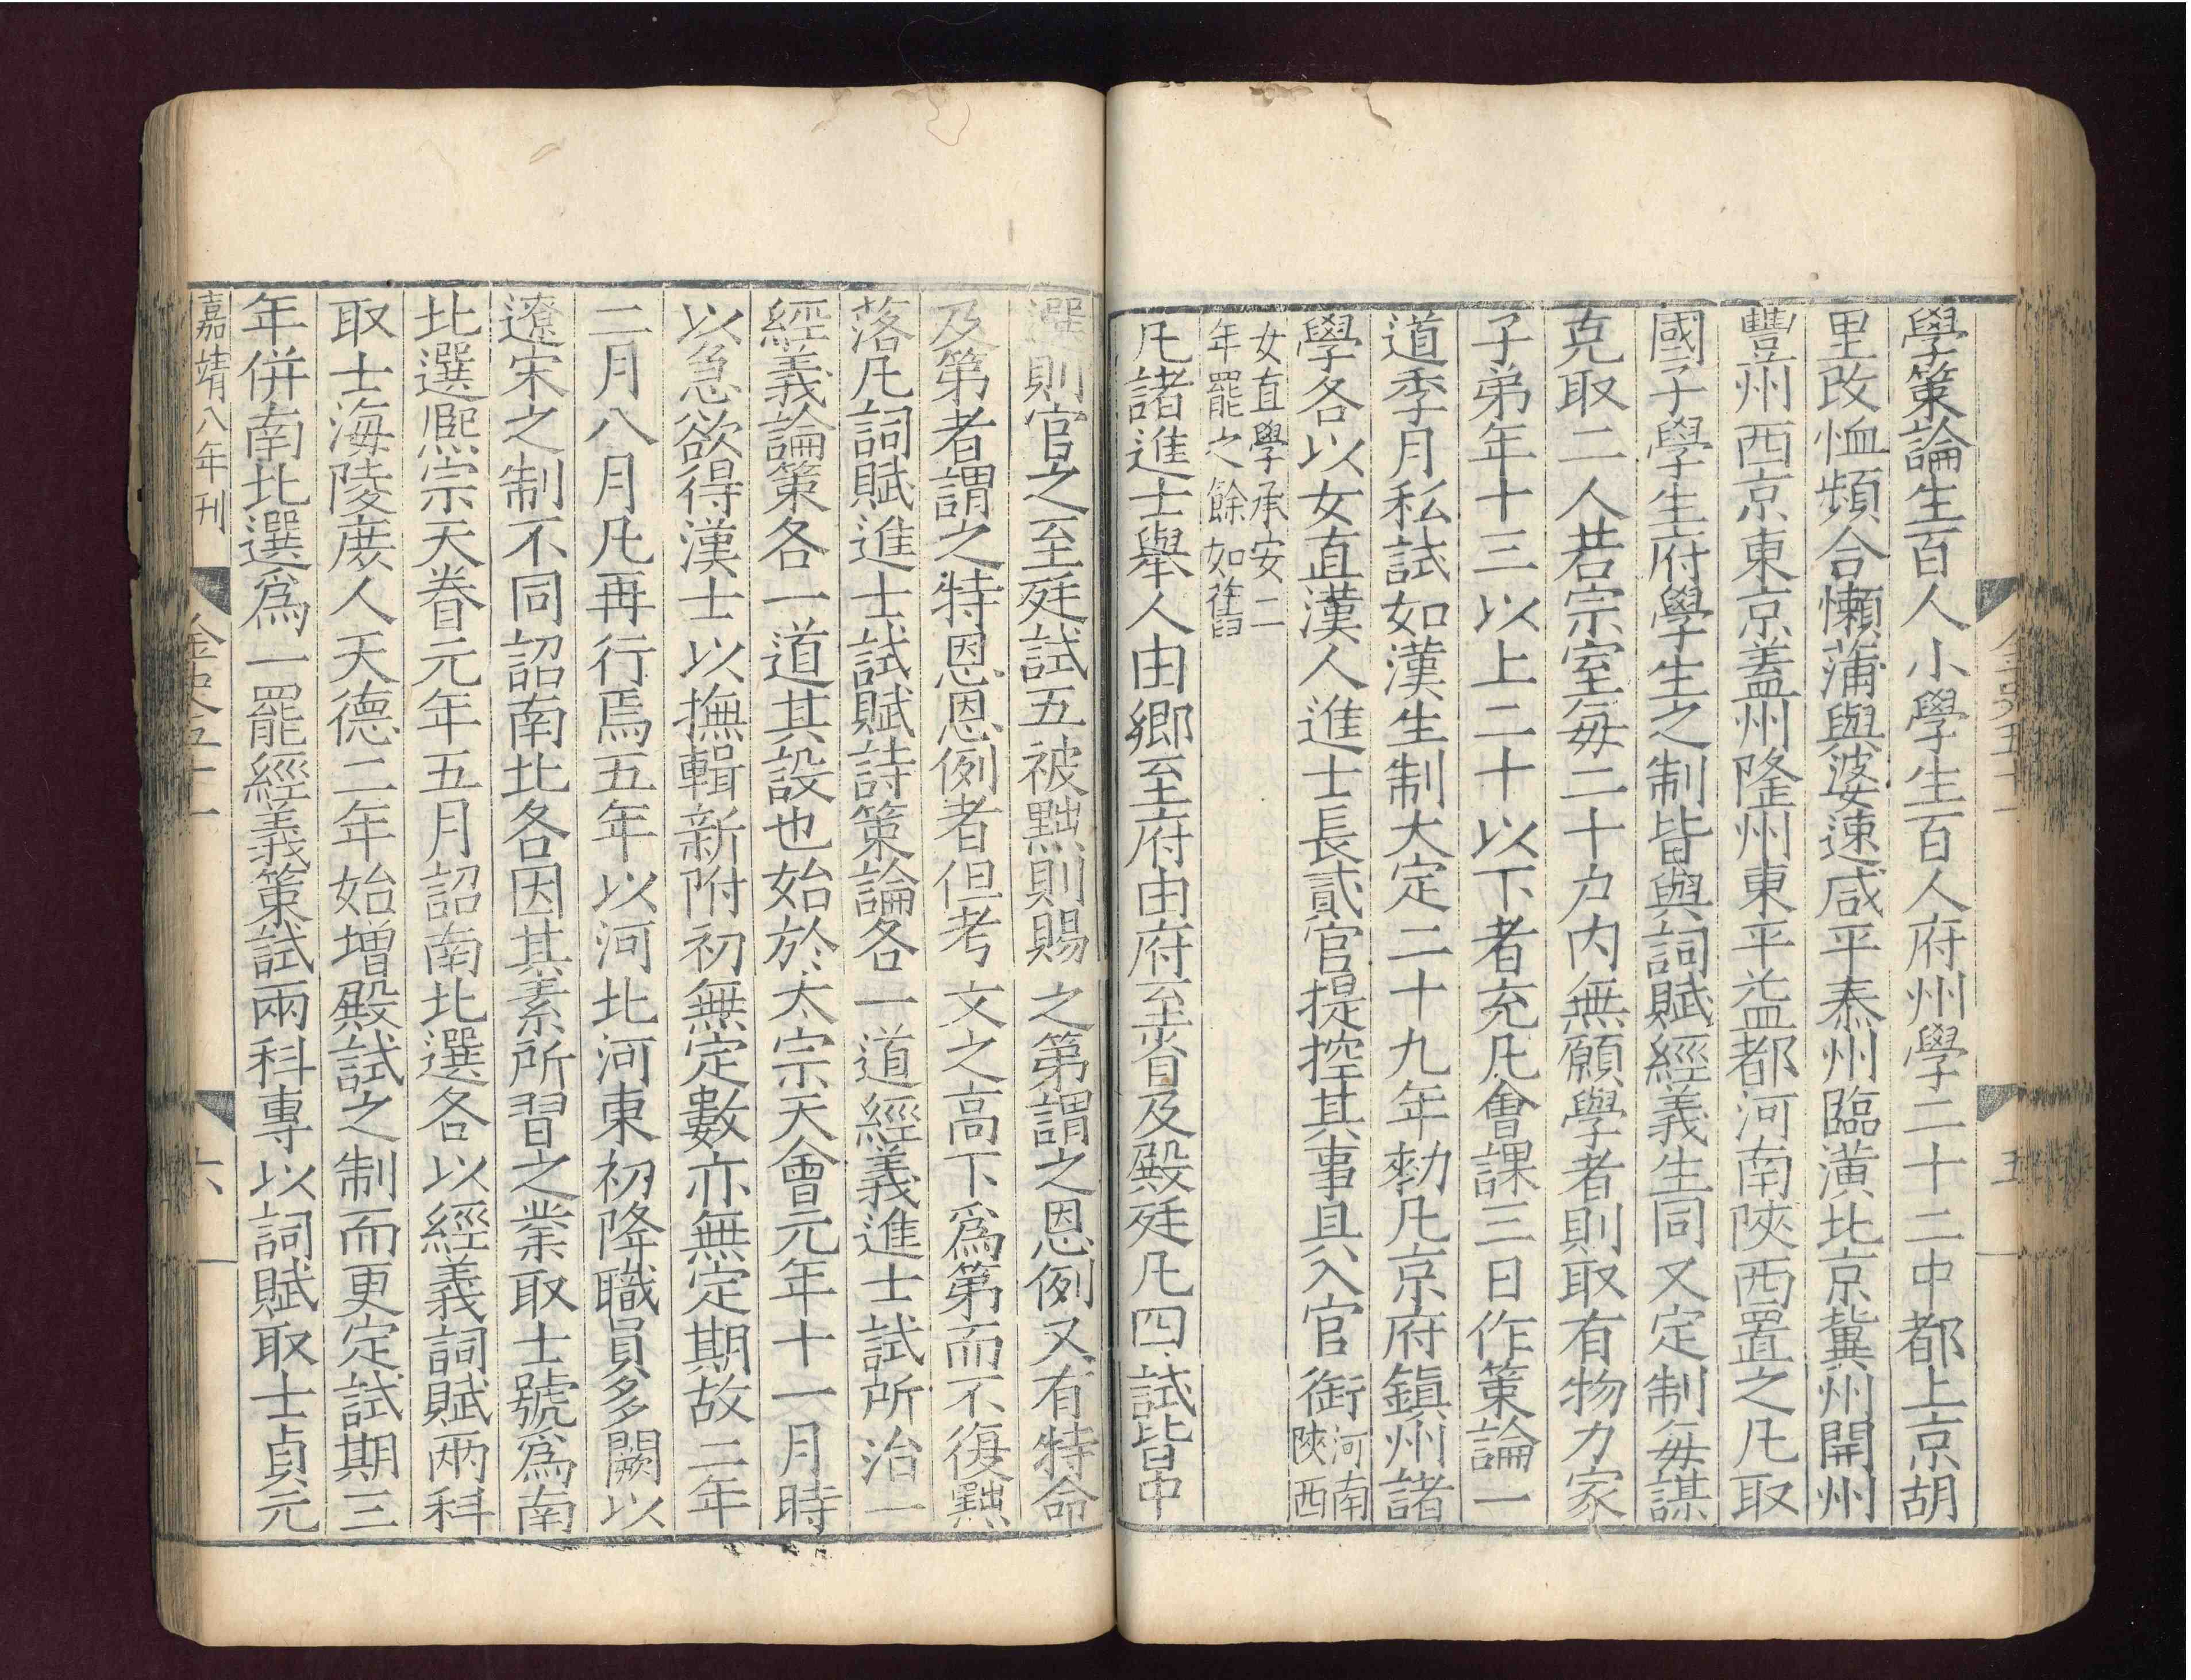 學策論生百人小學生百人府州學二十二中都上京胡
里改恤頻合懶蒲與婆速咸平泰州臨潢北京冀州開州
豐州西京東京蓋州隆州東平益都河南陝西置之凡取
國子學生府學生之制皆與詞賦經義生同又定制每謀
克取二人若宗室每二十户内無願學者則取有物力家
子弟年十三以上二十以下者充凡會課三日作策論一
道季月私試如漢生制大定二十九年勑凡京府鎮州諸
學各以女直漢人進士長貳官提控其事具入官銜河南陝西
女直學承安二年罷之餘如舊
凡諸進士舉人由鄉至府由府至省及殿廷凡四試皆中
選則官之至廷試五被黜則賜之第謂之恩例又有特命
及第者謂之特恩恩例者但考文之高下為第而不復黜
落凡詞賦進士試賦詩策論各一道經義進士試所治一
經義論策各一道其設也始於太宗天會元年十一月時
以急欲得漢士以撫輯新附初無定數亦無定期故二年
二月八月凡再行焉五年以河北河東初降職員多闕以
遼宋之制不同詔南北各因其素所習之業取士號為南
北選熈宗天眷元年五月詔南北選各以經義詞賦兩科
取士海陵庶人天德二年始增殿試之制而更定試期三
年併南北選爲一罷經義策試兩科專以詞賦取士貞元
嘉靖八年刊
金史五十一
六
五